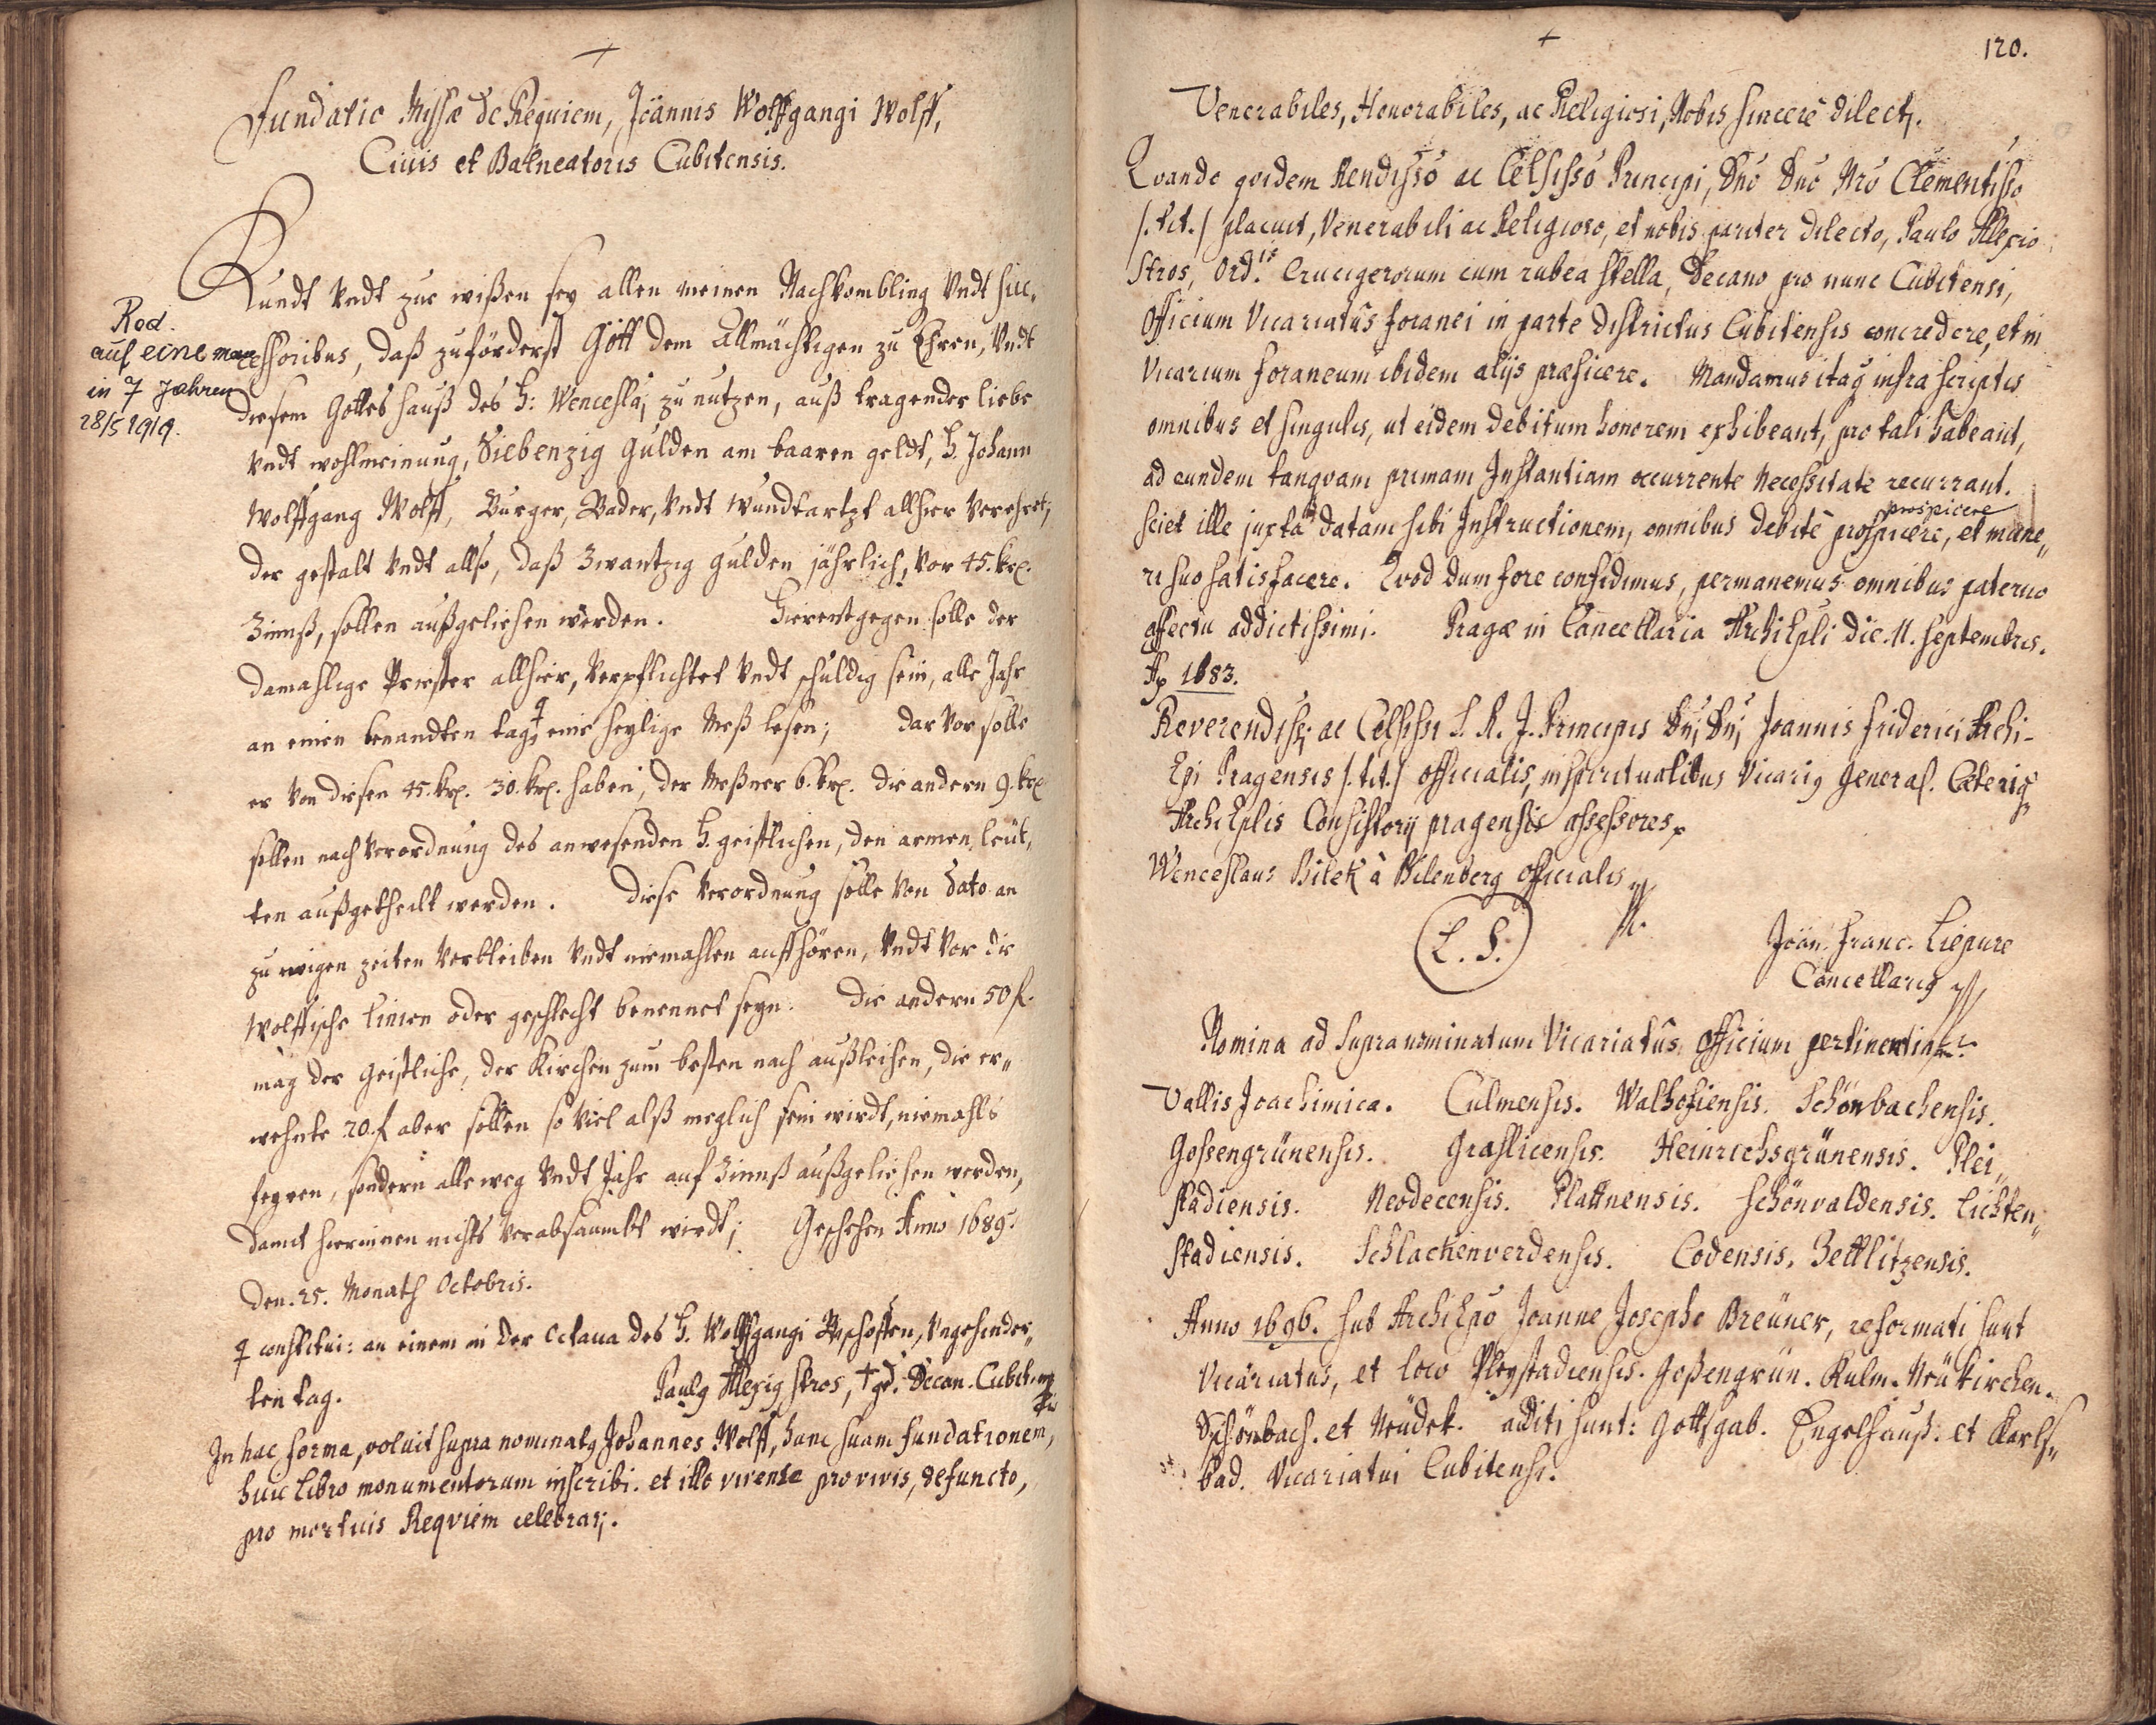 +
Fundatio Missæ de Requiem, Joännis Wolffgangi Wolff,
Ciuis et Balneatoris Cubitensis.
Kundt Vndt zue wißen sey allen meinen Nachkombling Vndt suc„
cessoribus, daß zuförderst Gott dem Allmächtigen zu Ehren, Vndt
diesem Gottes hauß des H: Wenceslaj zu nutzen, auß tragender liebe
Vndt wohlmeinung, Siebenzig Gulden am baaren geldt, H. Johann
Wolffgang Wolff, Burger, Bader, Vndt Wundtartzt allhier Verehret,
der gestalt Vndt allso, daß Zwantzig Gulden jährlich, Vor 45. krz.
Zinnß, sollen außgeliehen werden. Hierentgegen solle der
damahlige Priester allhier, Verpflichtet Vndt schuldig sein, alle Jahr
an einen benandten tag, eine heylige Meß lesen; dar Vor solle
er Von diesen 45. krz. 30. krz. haben, der Meßner 6. krz. die andern 9. krz
sollen nach Verordnung des anwesenden H. geistlichen, den armen leüt„
ten außgetheilt werden. diese Verordnung solle Von dato an
zu ewigen zeiten Verbleiben Vndt niemahlen auffhören, Vndt Vor die
Wolffische Linien oder geschlecht benennet seyn. die andern 50 f.
mag der Geistliche, der Kirchen zum besten nach außleihen, die er„
wehnte 20. f aber sollen so Viel alß meglich sein wirdt, niemahls
feyren, sondern alleweg Vndt Jahr auf Zinnß außgeliehen werden,
damit hierinnen nichts Verabsaumbt wirdt; Geschehen Anno 1689.
den. 25. Monath Octobris.
constitui: an einem in der Octaua des H. Wolffgangi Bischoffen, Vngehinder„
ten tag. Paulq Alexiq Stros, Decan. Cubit.
In hac forma, voluit supra nominatq Johannes Wolff, hanc suam fundationem,
huic Libro monumentorum inscribi. et illo vivente pro vivis, defuncto,
pro mortuis Reqviem celebrarj.
Red.
auf eine
in 7 Jahren
28/5 1919.
+
120.
Venerabiles, Honorabiles, ac Religiosi, Nobis sincerè dilectj.
Qvando qvidem Rendisso ac Celsisso Principi, Dno Dno Nro Clementisso
/. tit. / placuit, Venerabili ac Religioso, et nobis pariter dilecto, Paulo Alexio
Stros, Ord.is Crucigerorum cum rubea stella, Decano pro nunc Cubitensi,
Officium Vicariatûs foranei in parte districtus Cubitensis concredere, et in
Vicarium foraneum ibidem alijs præficere. Mandamus itaq infra scriptis
omnibus et singulis, ut eidem debitum honorem exhibeant, pro tali habeant,
ad eundem tanqvam primam Instantiam occurrente necessitate recurrant.
prospicere
sciet ille juxta datam sibi Instructionem, omnibus debitè prospicere, et mune„
ri suo satisfacere. Qvod dum fore confidimus, permanemus omnibus paterno
affectu addictissimi. Pragæ in Cancellaria ArchiEpli die. 11. Septembris.
Ao 1683.
Reverendissi ac Celsissi S. R. J. Principis Dni, Dni Joannis Friderici Archi-
Epi Pragensis /. tit. / Officialis, in spiritualibus Vicariq General. Cæteriq
ArchiEplis Consistorij pragensis assessores.
Wenceslaus Bilek à Bilenberg Officialis
L. S.
Joän. Franc. Liepure
Cancellariq
Nomina ad supra nominatum Vicariatûs Officium pertinentia.
Vallis Joachimica. Culmensis. Walhofiensis. Schönbachensis.
Gossengrünensis. Graslicensis. Heinrichsgrünensis. Plei„
stadiensis. Neodecensis. Plattnensis. Schönvaldensis. Lichten„
stadiensis. Schlackenverdensis. Codensis. Zettlitzensis.
Anno 1696. sub ArchiEpo Joanne Josepho Breüner, reformati sunt
Vicariatus, et loco Pleystadiensis. Goßengrün. Kulm. Neükirchen.
Schönbach. et Neüdek. additi sunt: Gottsgab. Engelhauß: et Karls„
bad. Vicariatui Cubitensi.